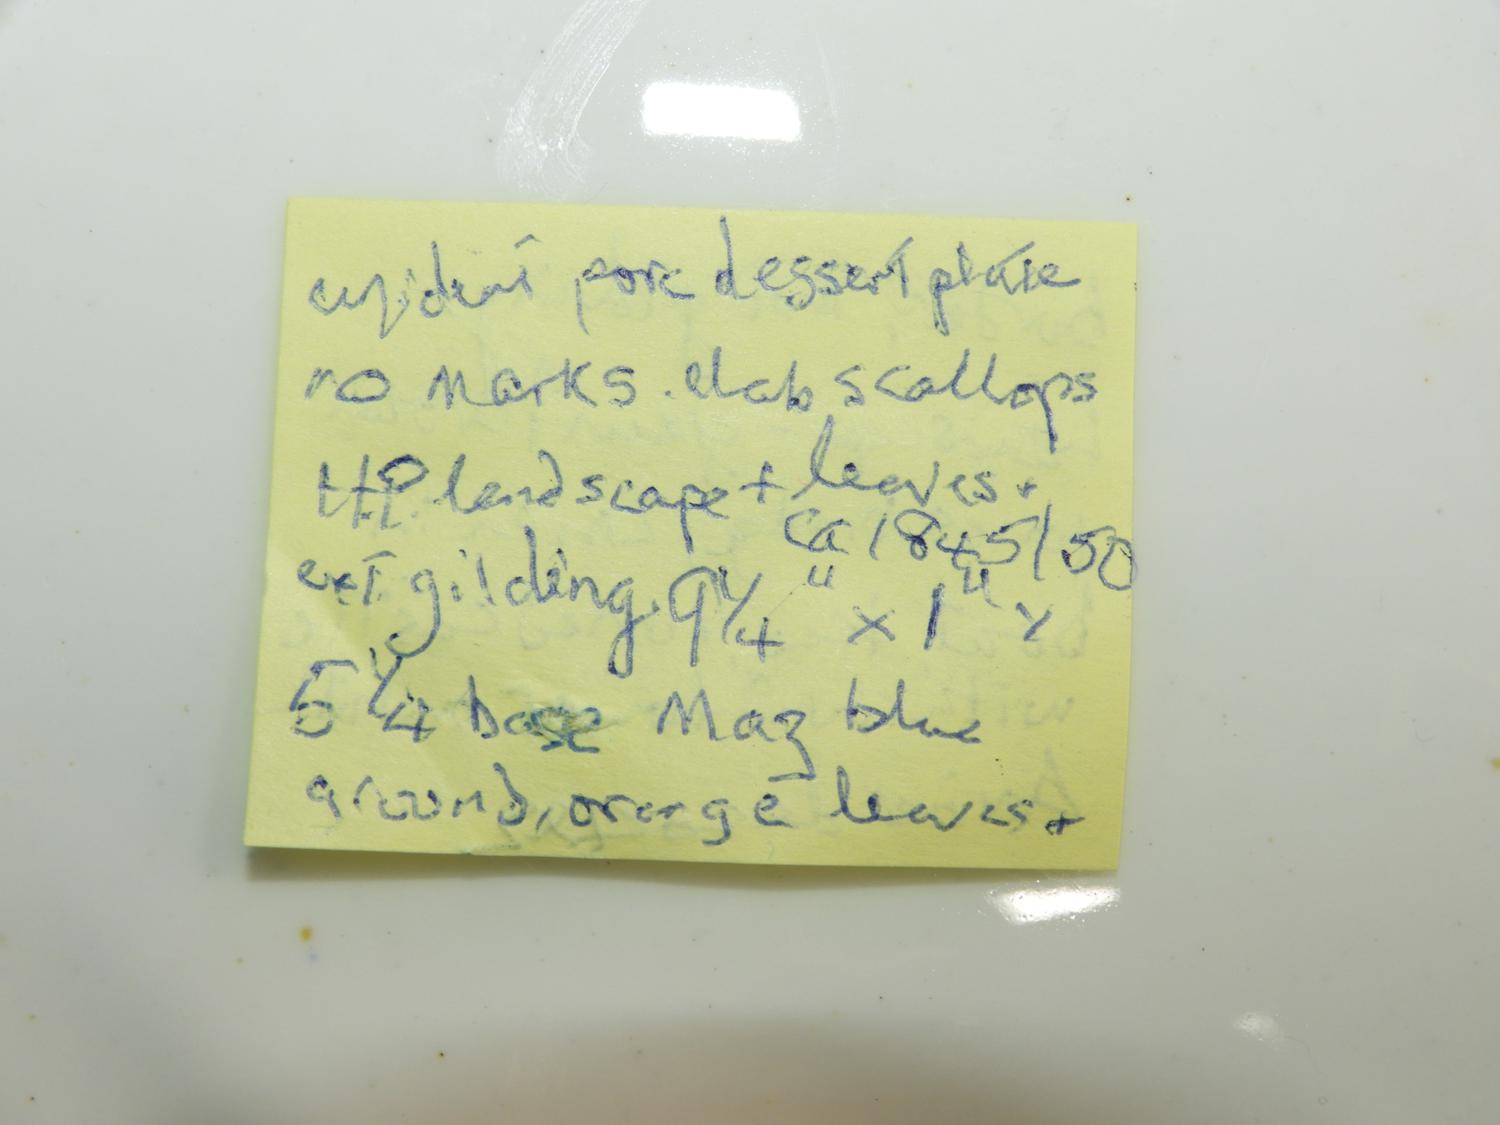 porc dessert plate
no marks. elab scallops
HP landscape + leaves +
ca 1845/50
ext gilding. 9 1/4" x 1" x
5 1/4 base Maz blue
ground, orange leaves +